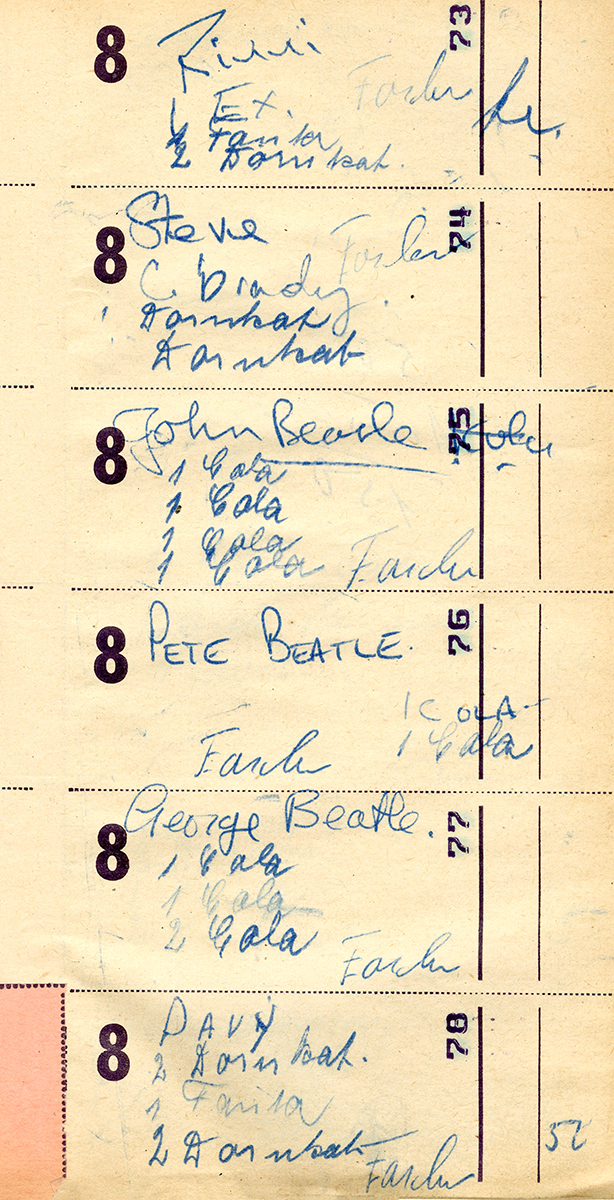 8 73
1 Ex. Fascher
1 Fanta
2 Dornkat.
8 Steve 74
Fascher
Dornkat
Dornkat
8 John Beatle 75
1 Cola
1 Cola
1 Cola
1 Cola Fascher
8 PETE BEATLE. 76
1 COLA
1 Cola
Fascher
8 George Beatle. 77
1 Cola
1 Cola
2 Cola
Fascher
8 DAVY 78
2 Dornkat.
1 Fanta
2 Dornkat 52
Fascher